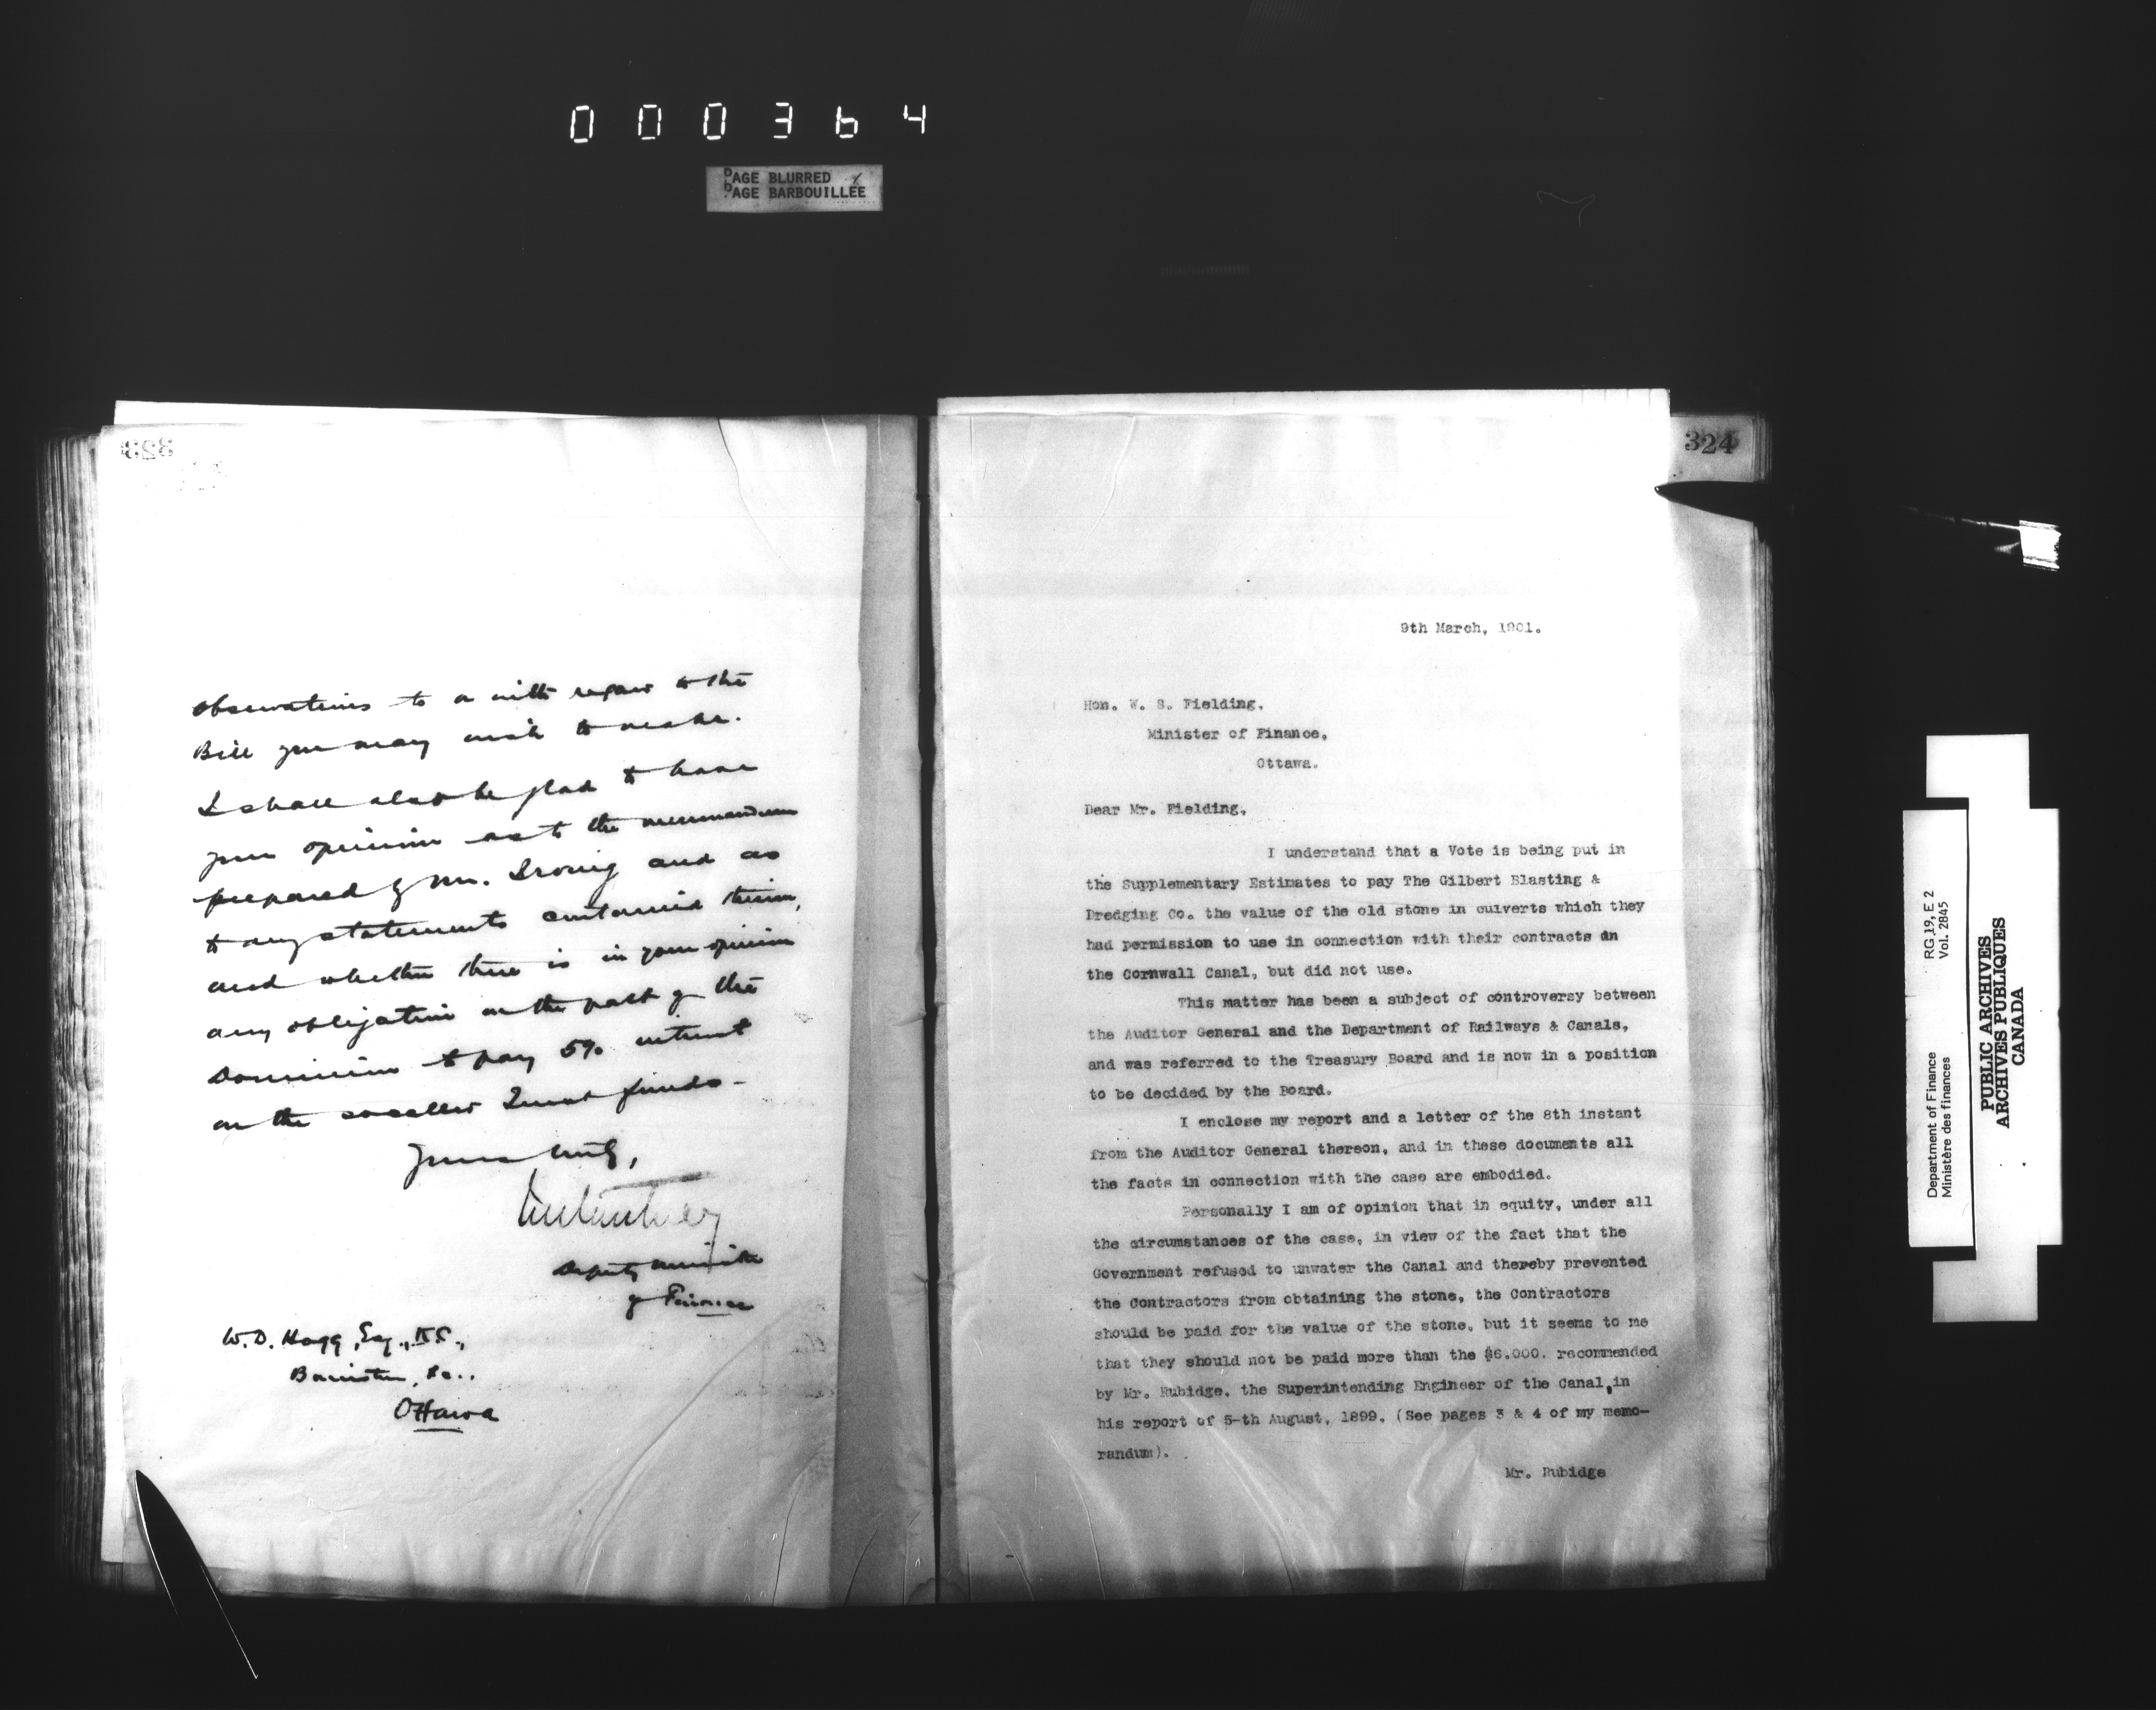 000364
PAGE BLURRED
PAGE BARBOUILLEE
323
observations to a with regard to the
Bill you may wish to make.
I shall also be glad to have
your opinion as to the memorandum
prepared by Mr. Irving and as
to any statements contained therein,
and whether there is in your opinion
any obligation on the part of the
Dominion to pay 5% interest
on the so called Trust funds -
Yours truly,
Deputy Minister
of Finance
W. D. Hogg, Esq., K.C.,
Barrister, &c.,
Ottawa
324
9th March, 1901.
Hon. W. S. Fielding,
Minister of Finance,
Ottawa.
Dear Mr. Fielding,
I understand that a Vote is being put in
the Supplementary Estimates to pay The Gilbert Blasting &
Dredging Co. the value of the old stone in culverts which they
had permission to use in connection with their contracts on
the Cornwall Canal, but did not use.
This matter has been a subject of controversy between
the Auditor General and the Department of Railways & Canals,
and was referred to the Treasury Board and is now in a position
to be decided by the Board.
I enclose my report and a letter of the 8th instant
from the Auditor General thereon, and in these documents all
the facts in connection with the case are embodied.
Personally I am of opinion that in equity, under all
the circumstances of the case, in view of the fact that the
Government refused to unwater the Canal and thereby prevented
the Contractors from obtaining the stone, the Contractors
should be paid for the value of the stone, but it seems to me
that they should not be paid more than the $6.000. recommended
by Mr. Rubidge, the Superintending Engineer of the Canal, in
his report of 5-th August, 1899. (See pages 3 & 4 of my memo-
randum).
Mr. Rubidge
Department of Finance RG 19, E 2
Ministère des finances Vol. 2845
PUBLIC ARCHIVES
ARCHIVES PUBLIQUES
CANADA